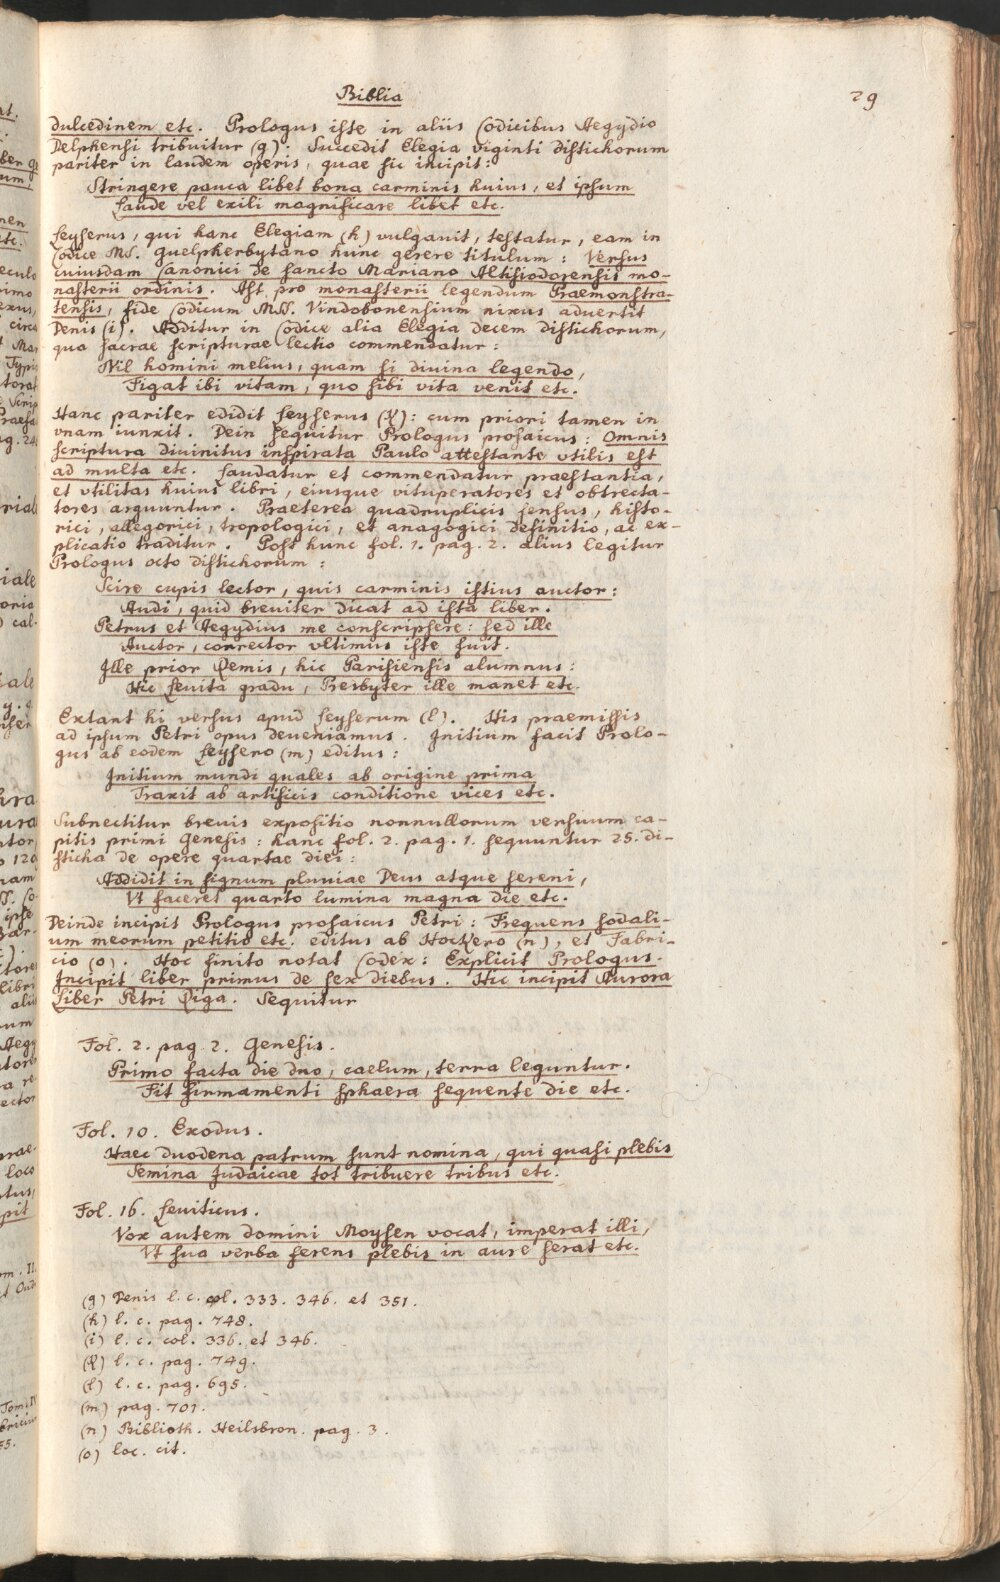 Biblia
29
dulcedinem etc. Prologus iste in aliis Codicibus Aegydio
Delphensi tribuitur (g). Succedit Elegia viginti distichorum
pariter in laudem operis, quae sic incipit:
Stringere pauca libet bona carminis huius, et ipsum
Laude vel exili magnificare libet etc.
Leyserus, qui hanc Elegiam (h) vulgauit, testatur, eam in
Codice MS. Guelpherbytano hunc gerere titulum: Versus
cuiusdam Canonici de sancto Mariano Altisiodorensis mo-
nasterii ordinis. Ast pro monasterii legendum Praemonstra-
tensis, fide Codicum MSS. Vindobonensium nixus aduertit
Denis (i). Additur in Codice alia Elegia decem distichorum,
qua sacrae scripturae lectio commendatur:
Nil homini melius, quam si diuina legendo,
Figat ibi vitam, quo sibi vita venit etc.
Hanc pariter edidit Leyserus (k): cum priori tamen in
vnam iunxit. Dein sequitur Prologus prosaicus: Omnis
scriptura diuinitus inspirata Paulo attestante vtilis est
ad multa etc. Laudatur et commendatur praestantia,
et vtilitas huius libri, eiusque vituperatores et obtrecta-
tores arguuntur. Praeterea quadruplicis sensus, histo-
rici, allegorici, tropologici, et anagogici definitio, ac ex-
plicatio traditur. Post hunc fol. 1. pag. 2. alius legitur
Prologus octo distichorum:
Scire cupis lector, quis carminis istius auctor:
Audi, quid breuiter dicat ad ista liber.
Petrus et Aegydius me conscripsere: sed ille
Auctor, corrector vltimus iste fuit.
Ille prior Remis, hic Parisiensis alumnus:
Hic Leuita gradu, Presbyter ille manet etc.
Extant hi versus apud Leyserum (l). His praemissis
ad ipsum Petri opus deueniamus. Initium facit Prolo-
gus ab eodem Leysero (m) editus:
Initium mundi quales ab origine prima
Traxit ab artificis conditione vices etc.
Subnectitur breuis expositio nonnullorum versuum ca-
pitis primi Genesis: hanc fol. 2. pag. 1. sequuntur 25. di-
sticha de opere quartae diei:
Addidit in signum pluuiae Deus atque sereni,
Vt faceret quarto lumina magna die etc.
Deinde incipit Prologus prosaicus Petri: Frequens sodali-
um meorum petitio etc. editus ab Hockero (n), et Fabri-
cio (o). Hoc finito notat Codex: Explicit Prologus.
Incipit liber primus de sex diebus. Hic incipit Aurora
Liber Petri Riga. Sequitur
Fol. 2. pag. 2. Genesis.
Primo facta die duo, caelum, terra leguntur.
Fit firmamenti sphaera sequente die etc.
Fol. 10. Exodus.
Haec duodena patrum sunt nomina, qui quasi plebis
Semina Judaicae tot tribuere tribus etc.
Fol. 16. Leuiticus.
Vox autem domini Moysen vocat, imperat illi,
Vt sua verba ferens plebis in aure ferat etc.
(g) Denis l. c. col. 333. 346. et 351.
(h) l. c. pag. 748.
(i) l. c. col. 336. et 346.
(k) l. c. pag. 749.
(l) l. c. pag. 695.
(m) pag. 701.
(n) Biblioth. Heilsbron. pag. 3.
(o) loc. cit.